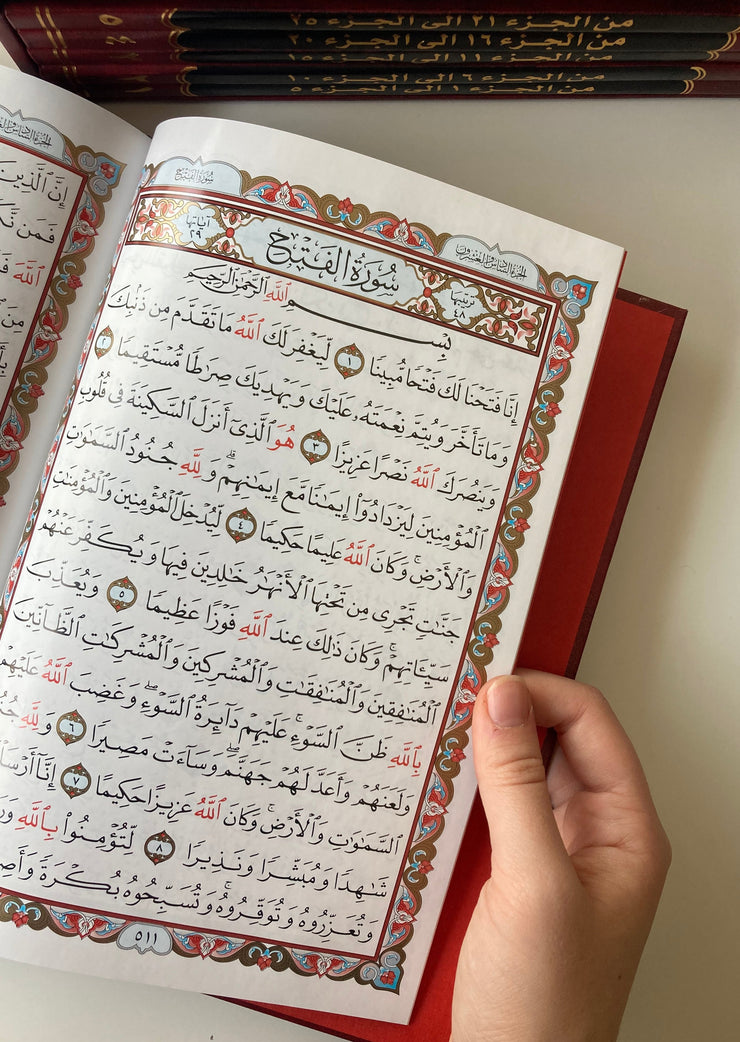 من الجزء ٢١ الى الجزء ٢٥
من الجزء ١٦ الى الجزء ٢٠
من الجزء ١١ الى الجزء ١٥
من الجزء ٦ الى الجزء ١٠
من الجزء ١ الى الجزء ٥
الجزء السادس والعشرون
سُورَةُ الفَتْحِ
ترتيبها ٤٨
سُورَةُ الفَتْحِ
آياتها ٢٩
بِسْمِ ٱللَّهِ ٱلرَّحْمَٰنِ ٱلرَّحِيمِ
إِنَّا فَتَحْنَا لَكَ فَتْحًا مُّبِينًا ١ لِّيَغْفِرَ لَكَ ٱللَّهُ مَا تَقَدَّمَ مِن ذَنۢبِكَ
وَمَا تَأَخَّرَ وَيُتِمَّ نِعْمَتَهُۥ عَلَيْكَ وَيَهْدِيَكَ صِرَٰطًا مُّسْتَقِيمًا ٢
وَيَنصُرَكَ ٱللَّهُ نَصْرًا عَزِيزًا ٣ هُوَ ٱلَّذِىٓ أَنزَلَ ٱلسَّكِينَةَ فِى قُلُوبِ
ٱلْمُؤْمِنِينَ لِيَزْدَادُوٓا۟ إِيمَٰنًا مَّعَ إِيمَٰنِهِمْ ۗ وَلِلَّهِ جُنُودُ ٱلسَّمَٰوَٰتِ
وَٱلْأَرْضِ ۚ وَكَانَ ٱللَّهُ عَلِيمًا حَكِيمًا ٤ لِّيُدْخِلَ ٱلْمُؤْمِنِينَ وَٱلْمُؤْمِنَٰتِ
جَنَّٰتٍ تَجْرِى مِن تَحْتِهَا ٱلْأَنْهَٰرُ خَٰلِدِينَ فِيهَا وَيُكَفِّرَ عَنْهُمْ
سَيِّـَٔاتِهِمْ ۚ وَكَانَ ذَٰلِكَ عِندَ ٱللَّهِ فَوْزًا عَظِيمًا ٥ وَيُعَذِّبَ
ٱلْمُنَٰفِقِينَ وَٱلْمُنَٰفِقَٰتِ وَٱلْمُشْرِكِينَ وَٱلْمُشْرِكَٰتِ ٱلظَّآنِّينَ
بِٱللَّهِ ظَنَّ ٱلسَّوْءِ ۚ عَلَيْهِمْ دَآئِرَةُ ٱلسَّوْءِ ۖ وَغَضِبَ ٱللَّهُ عَلَيْهِمْ
وَلَعَنَهُمْ وَأَعَدَّ لَهُمْ جَهَنَّمَ ۖ وَسَآءَتْ مَصِيرًا ٦ وَلِلَّهِ
ٱلسَّمَٰوَٰتِ وَٱلْأَرْضِ ۚ وَكَانَ ٱللَّهُ عَزِيزًا حَكِيمًا ٧ إِنَّآ
شَٰهِدًا وَمُبَشِّرًا وَنَذِيرًا ٨ لِّتُؤْمِنُوا۟ بِٱللَّهِ
وَتُعَزِّرُوهُ وَتُوَقِّرُوهُ ۚ وَتُسَبِّحُوهُ بُكْرَةً
٥١١
الجزء السادس والعشرون
إِنَّ ٱلَّذِينَ
فَمَن
ٱللَّهَ